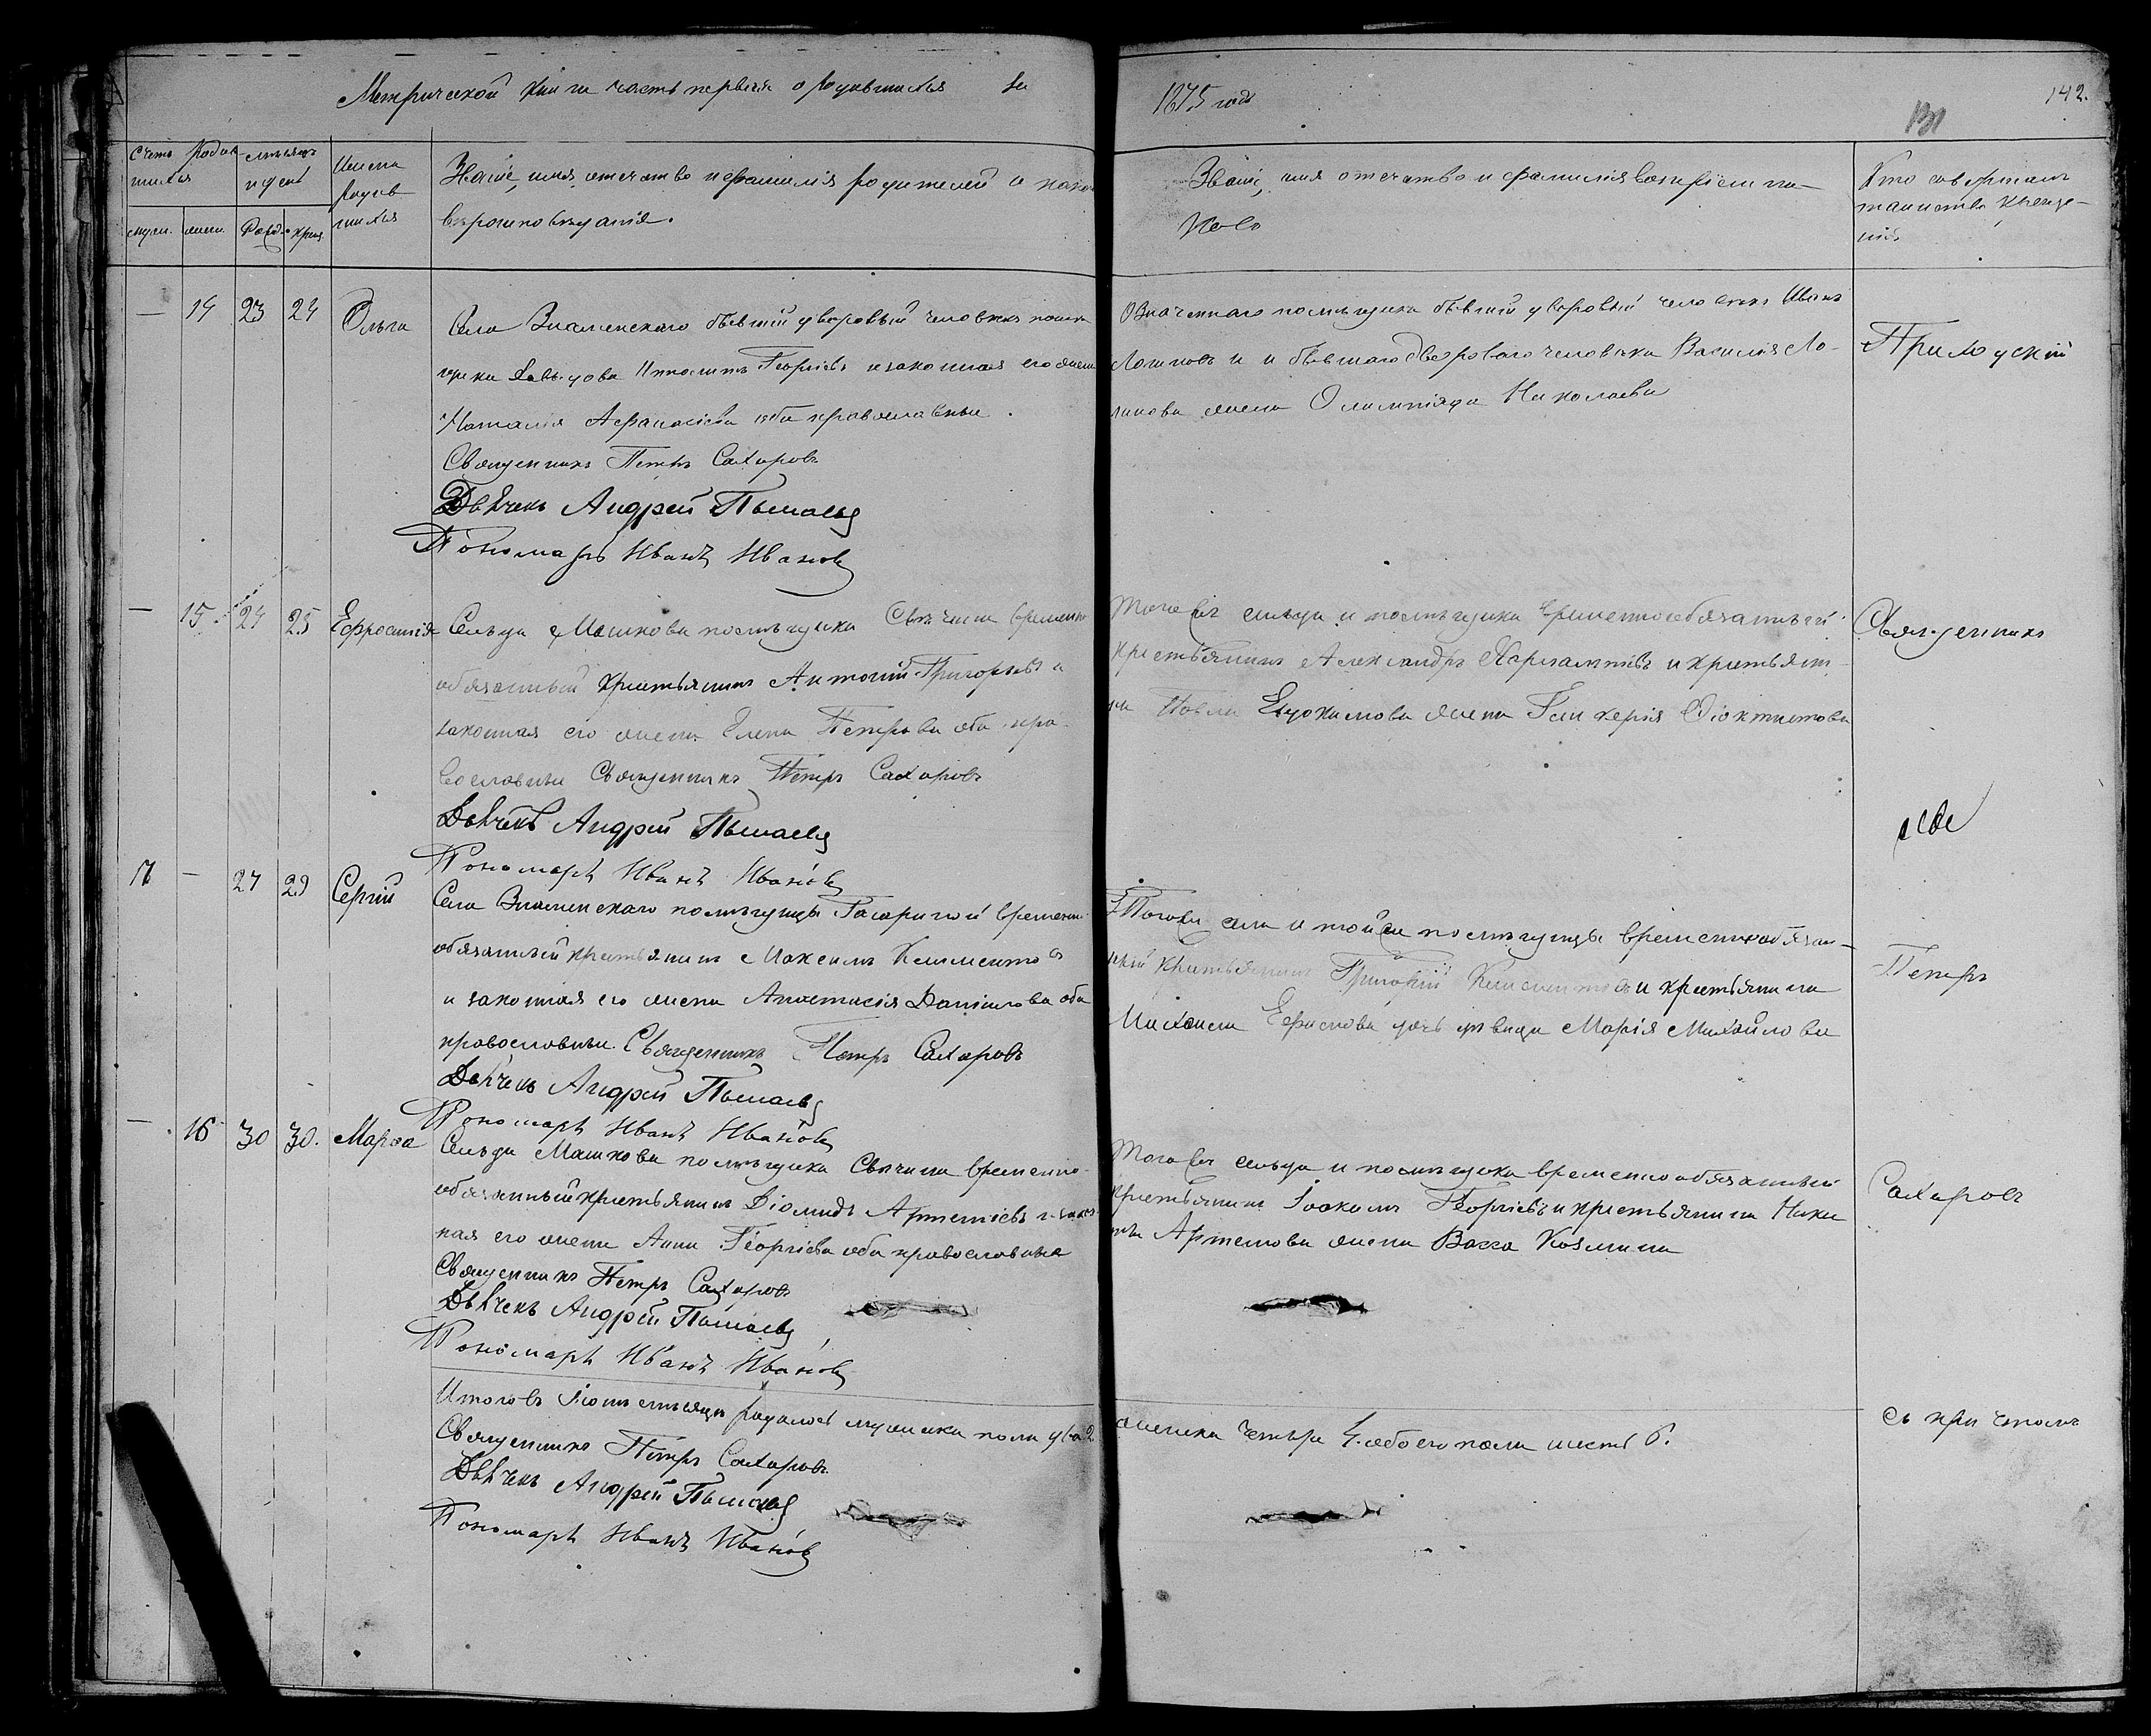 Метрической книги часть первая о родившихся за
1875 годъ
131
142.
Счетъ родив-
шихся
мѣсяцъ
и день
Имена
родив
шихся
Званіе, имя, отчество и фамилія родителей и какого
вѣроисповѣданія.
Званіе, имя отчество и фамилія воспріемни-
ковъ
Кто совершалъ
таинство креще-
нія
муж. жен. Рожд. крещ.
— 14 23 24 Ольга
Села Знаменскаго бывшій дворовый человѣкъ помѣ
щика Давыдова Ипполитъ Георгіевъ и законная его жена
Наталія Афанасіева оба православные.
Священникъ Петръ Сахаровъ
Дьячекъ Андрей
Пономарь Иванъ Ивановъ
Означеннаго помѣщика бывшій дворовый человѣкъ Иванъ
Логиновъ и бывшаго двороваго человѣка Василія Ло-
гинова жена Олимпіада Николаева
Приходскій
— 15. 24 25 Ефросинія
Сельца Машкова помѣщика Свѣчина временно
обязанный крестьянинъ Антоній Григорьевъ и
законная его жена Елена Петрова оба пра-
вославные Священникъ Петръ Сахаровъ
Дьячекъ Андрей
Пономарь Иванъ Ивановъ
Тогоже сельца и помѣщика временнообязанный
крестьянинъ Александръ Харлампіевъ и крестьяни-
на Павла Евдокимова жена Гликерія Ѳеоктистова
Священникъ
17 — 27 29 Сергій
Села Знаменскаго помѣщицы Гагариной временно
обязанный крестьянинъ Максимъ Климентовъ
и законная его жена Анастасія Даніилова оба
православные. Священникъ Петръ Сахаровъ
Дьячекъ Андрей
Пономарь Иванъ Ивановъ
Тогоже села и тойже помѣщицы временнообязан-
ный крестьянинъ Григорій Климентовъ и крестьянина
Михаила Ефимова дочь дѣвица Марія Михайлова
Петръ
— 16 30 30. Марѳа
Сельца Машкова помѣщика Свѣчина временно-
обязанный крестьянинъ Діомидъ Артеміевъ и закон
ная его жена Анна Георгіева оба православные
Священникъ Петръ Сахаровъ
Дьячекъ Андрей
Пономарь Иванъ Ивановъ
Тогоже сельца и помѣщика временнообязанный
крестьянинъ Іоакимъ Георгіевъ и крестьянина Ники
ты Артемова жена Васса Козмина
Сахаровъ
Итого въ Іюнѣ мѣсяцѣ родилось мужеска пола два 2
женска четыре 4. обоего пола шесть 6.
Священникъ Петръ Сахаровъ
Дьячекъ Андрей
Пономарь Иванъ Ивановъ
съ причтомъ